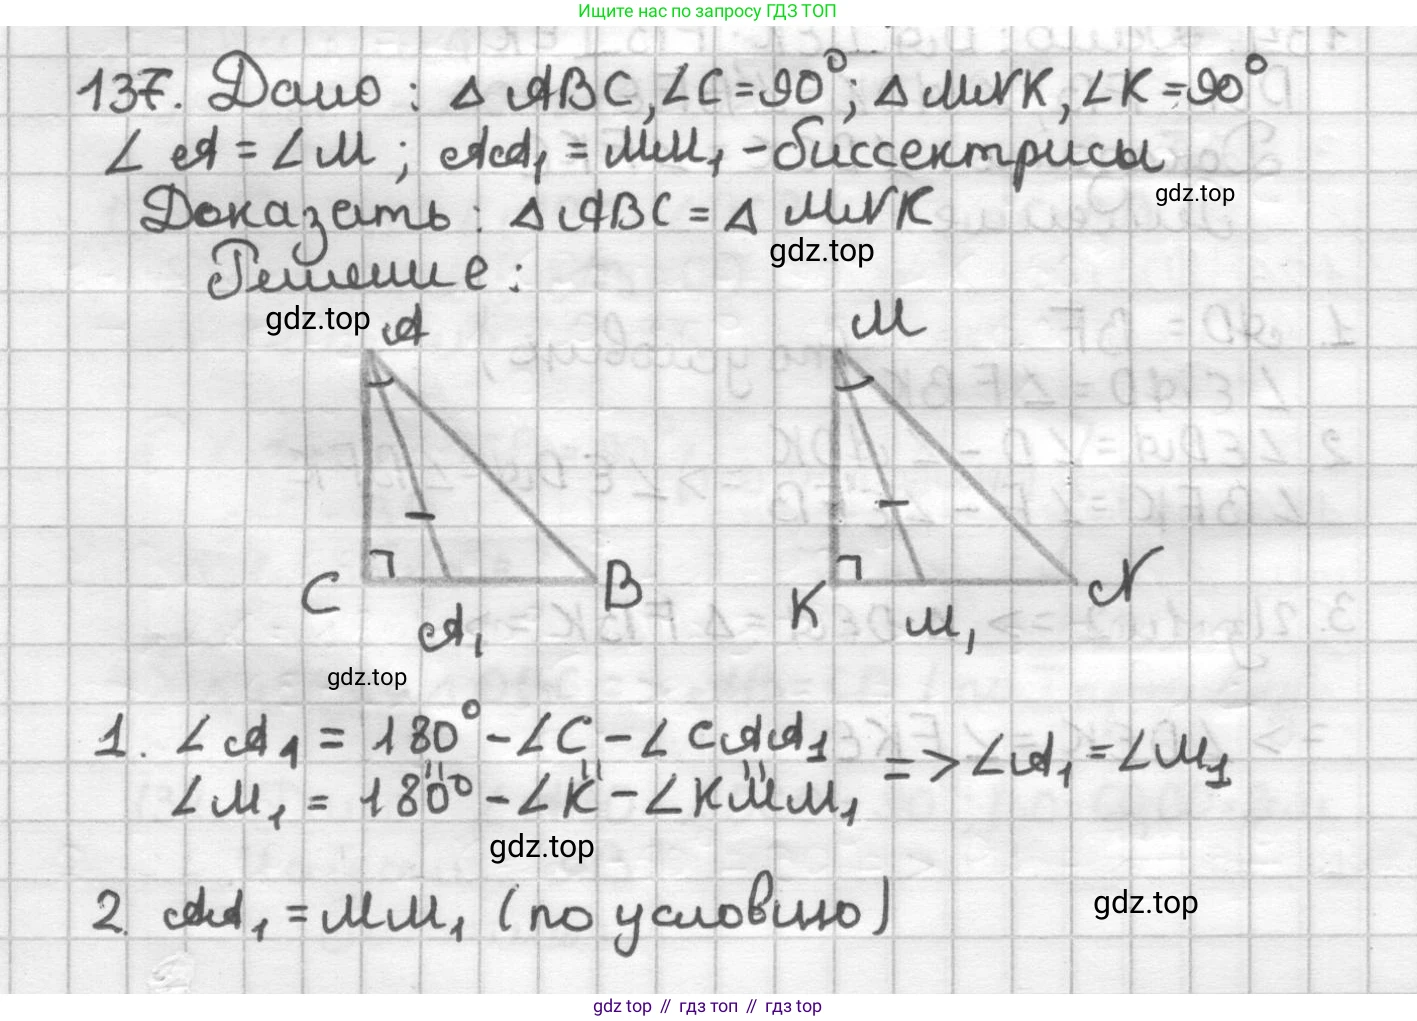 Ищите нас по запросу ГДЗ ТОП
137. Дано: △ ABC, ∠C = 90°; △ MNK, ∠K = 90°
∠A = ∠M; AA₁ = MM₁ - биссектрисы
gdz.top
Доказать: △ ABC = △ MNK
gdz.top
Решение:
gdz.top
A
M
C
B
K
N
A₁
M₁
gdz.top
1. ∠A₁ = 180° - ∠C - ∠CAA₁
∠M₁ = 180° - ∠K - ∠KMM₁
=> ∠A₁ = ∠M₁
gdz.top
2. AA₁ = MM₁ (по условию)
gdz.top
gdz top // гдз топ // gdz top